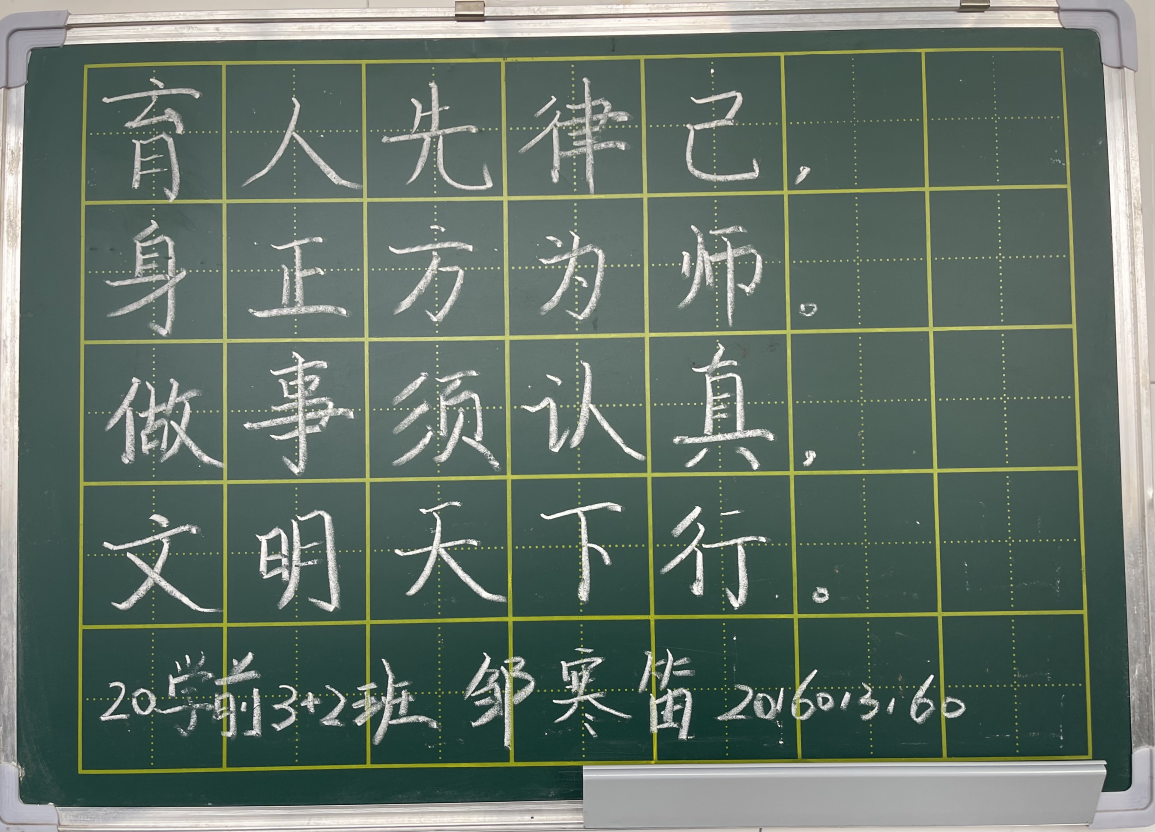 育人先律己，
身正方为师。
做事须认真，
文明天下行。
20学前3+2班 邹寒笛 2016013160